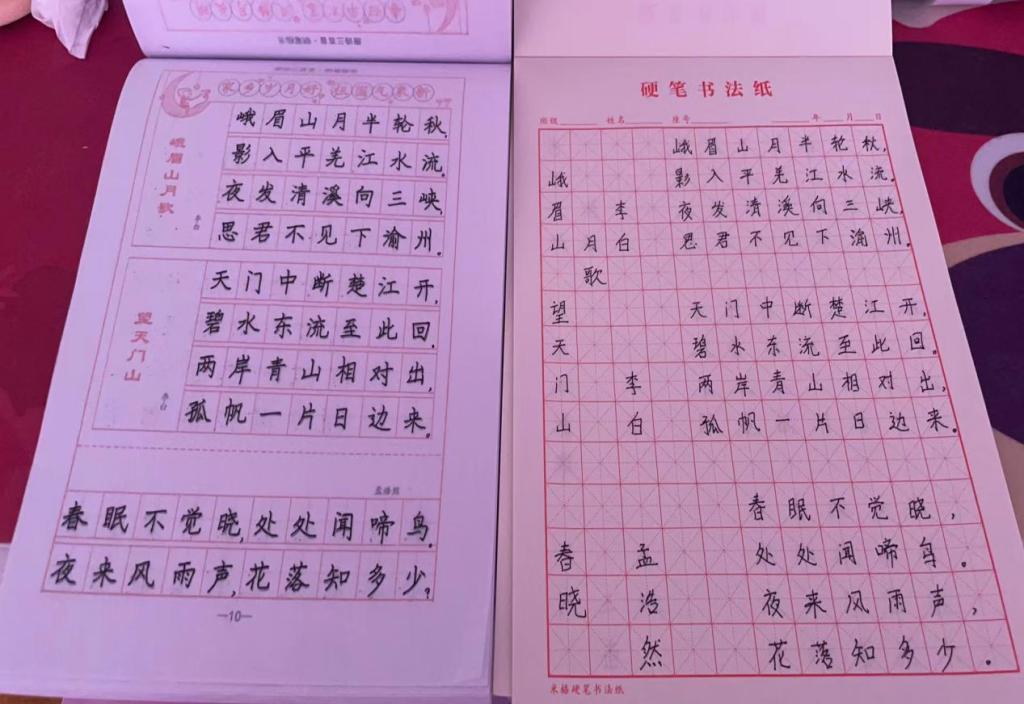 家乡岁月好
峨眉山月歌
李白
峨眉山月半轮秋,
影入平羌江水流。
夜发清溪向三峡,
思君不见下渝州。
望天门山
李白
天门中断楚江开,
碧水东流至此回。
两岸青山相对出,
孤帆一片日边来。
孟浩然
春眠不觉晓,处处闻啼鸟。
夜来风雨声,花落知多少?
—10—
硬笔书法纸
班级 姓名 座号 年 月 日
峨眉山月歌
李白
峨眉山月半轮秋,
影入平羌江水流。
夜发清溪向三峡,
思君不见下渝州。
望天门山
李白
天门中断楚江开,
碧水东流至此回。
两岸青山相对出,
孤帆一片日边来。
春晓
孟浩然
春眠不觉晓,
处处闻啼鸟。
夜来风雨声,
花落知多少。
米格硬笔书法纸